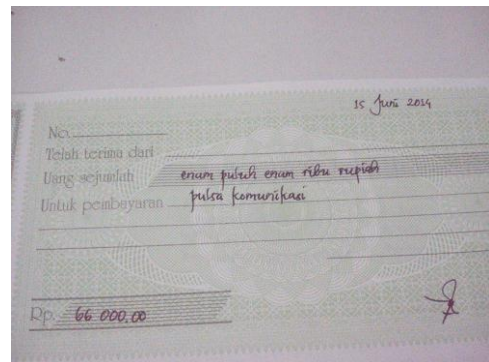 15 Juni 2014
No.
Telah terima dari
Uang sejumlah enam puluh enam ribu rupiah
Untuk pembayaran pulsa komunikasi
Rp. 66 000.00